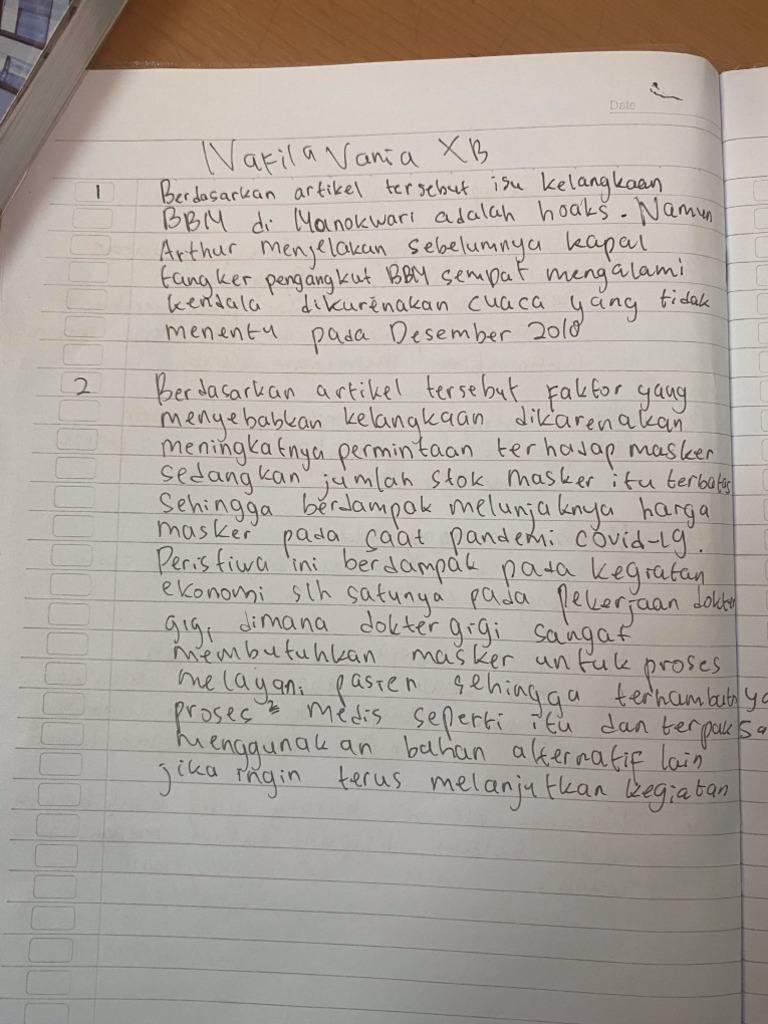 Date
Nafila Vania XB
1 Berdasarkan artikel tersebut isu kelangkaan
BBM di Manokwari adalah hoaks. Namun
Arthur menjelakan sebelumnya kapal
tangker pengangkut BBM sempat mengalami
kendala dikurenakan cuaca yang tidak
menentu pada Desember 2018
2 Berdasarkan artikel tersebut faktor yang
menyebabkan kelangkaan dikarenakan
meningkatnya permintaan terhadap masker
sedangkan jumlah stok masker itu terbatas
Sehingga berdampak melunjaknya harga
masker pada saat pandemi covid-19.
Peristiwa ini berdampak pada kegiatan
ekonomi slh satunya pada pekerjaan dokter
gigi dimana dokter gigi sangat
membutuhkan masker untuk proses
melayani pasien sehingga terhambatnya
proses² medis seperti itu dan terpaksa
menggunakan bahan alternatif lain
jika ingin terus melanjutkan kegiatan